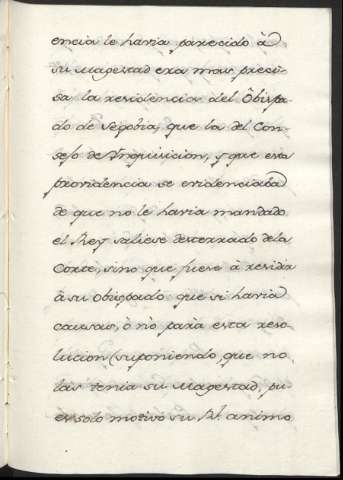 encia le havia parecido â
su Magestad era mas preci-
sa la residencia del Obispa-
do de Segobia, que la del Con-
sejo de Ynquisicion, y que esta
providencia se evidenciaba
de que no le havia mandado
el Rey saliese desterrado de la
Corte, sino que fuese â residir
â su Obispado que si havia
causas, ô no para esta reso-
lucion (suponiendo, que no
las tenia su Magestad, pu-
es solo motivó su Rl. animo